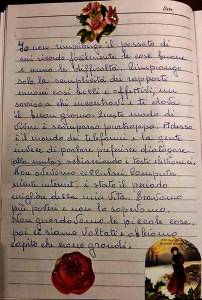 Data
Io non rimpiango il passato di
cui ricordo facilmente le cose buone
e meno le difficoltà. Rimpiango
solo la semplicità dei rapporti
umani così belli e affettivi, un
sorriso a chi incontravi e ti dava
il buon giorno. Questo modo di
vivere è scomparso purtroppo. Adesso
è il mondo dei telefonini e la gente
invece di parlare preferisce dialogare
alla muta, schiacciando i tasti
Non avevamo cellulari, computer,
niente internet, è stato il periodo
migliore della mia vita. Eravamo
più poveri e non lo sapevamo.
Non guardavamo le piccole cose
poi ci siamo voltati e abbiamo
capito che erano grandi.